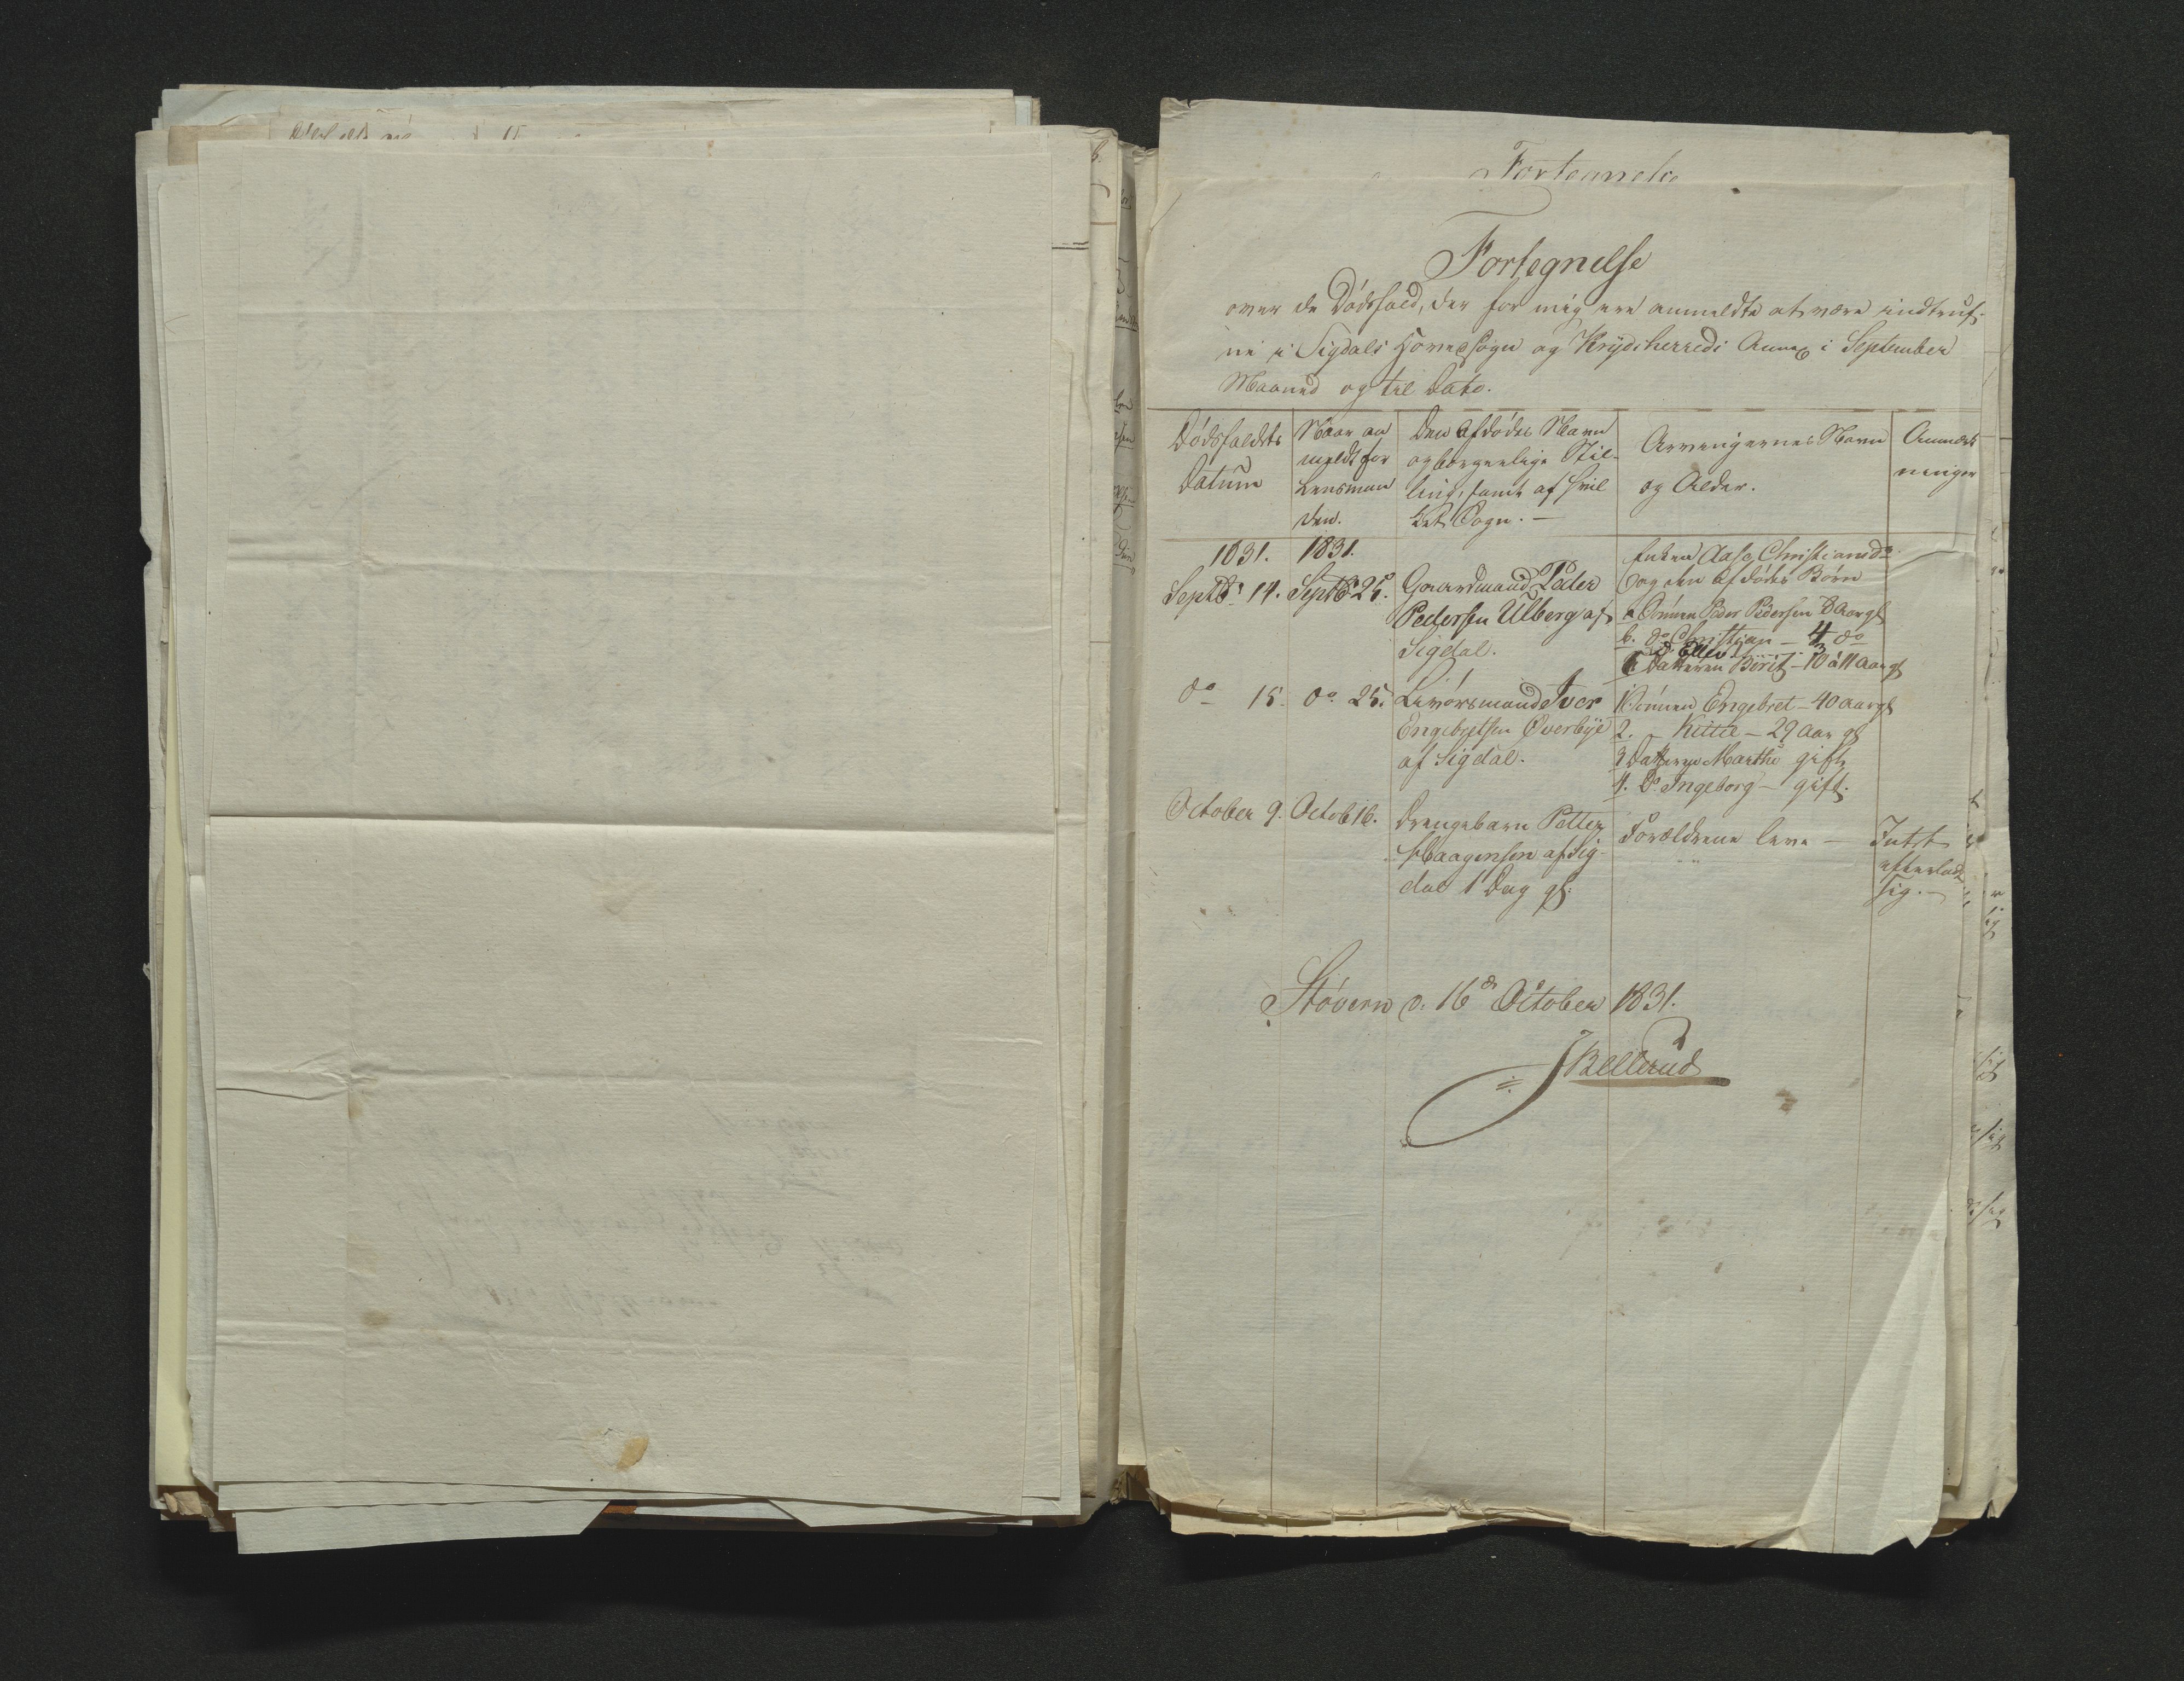 Fortegnelse
Fortegnelse
over de Dødsfald, der for mig ere anmeldte at være indtruf-
ne i Sigdals Hovedsogn og Krydsherreds Annex i September
Maaned og til Dato.
Dødsfaldets Datum
Naar an
meldt for
Lensman
den.
Den Afdødes Navn
og borgerlige Stil-
ling, samt af hvil
ket Sogn. —
Arvingernes Navn
og Alder.
Anmærk
ninger
1831. 1831.
Septbr 14. Septbr 25. Gaardmand Peder
Pedersen Ulberg af
Sigdal.
Enken Aase Christiansdr
og den afdødes Børn
a Sønnen Peder Pedersen 8 Aar gl
b. do Christian — 4 do
d. Ellev 3
c Datteren Berit — 10 à 11 aar gl
do 15. do 25. Livørsmand Iver
Engebretsen Overbye
af Sigdal.
1 Sønnen Engebret — 40 aar gl
2. — Kittil — 29 Aar gl
3 Datteren Marthe gift
4. do Ingeborg — gift.
October 9. Octob 16. Drengebarn Petter
Haagensen af Sig-
dal 1 Dag gl:
Forældrene leve —
Intet
efterladt
sig. —
Støvern d. 16de October 1831.
Bellerud